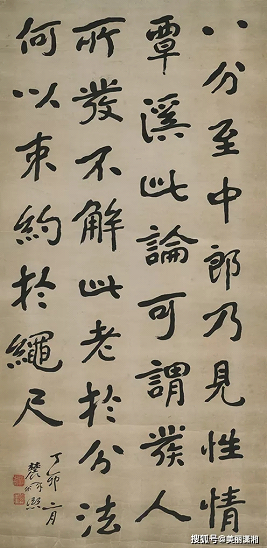 八分至中郎乃見性情
覃溪此論可謂發人
所發不解此老於分法
何以束約於繩尺
丁卯六月
農髯熙
搜狐号@美丽潇湘